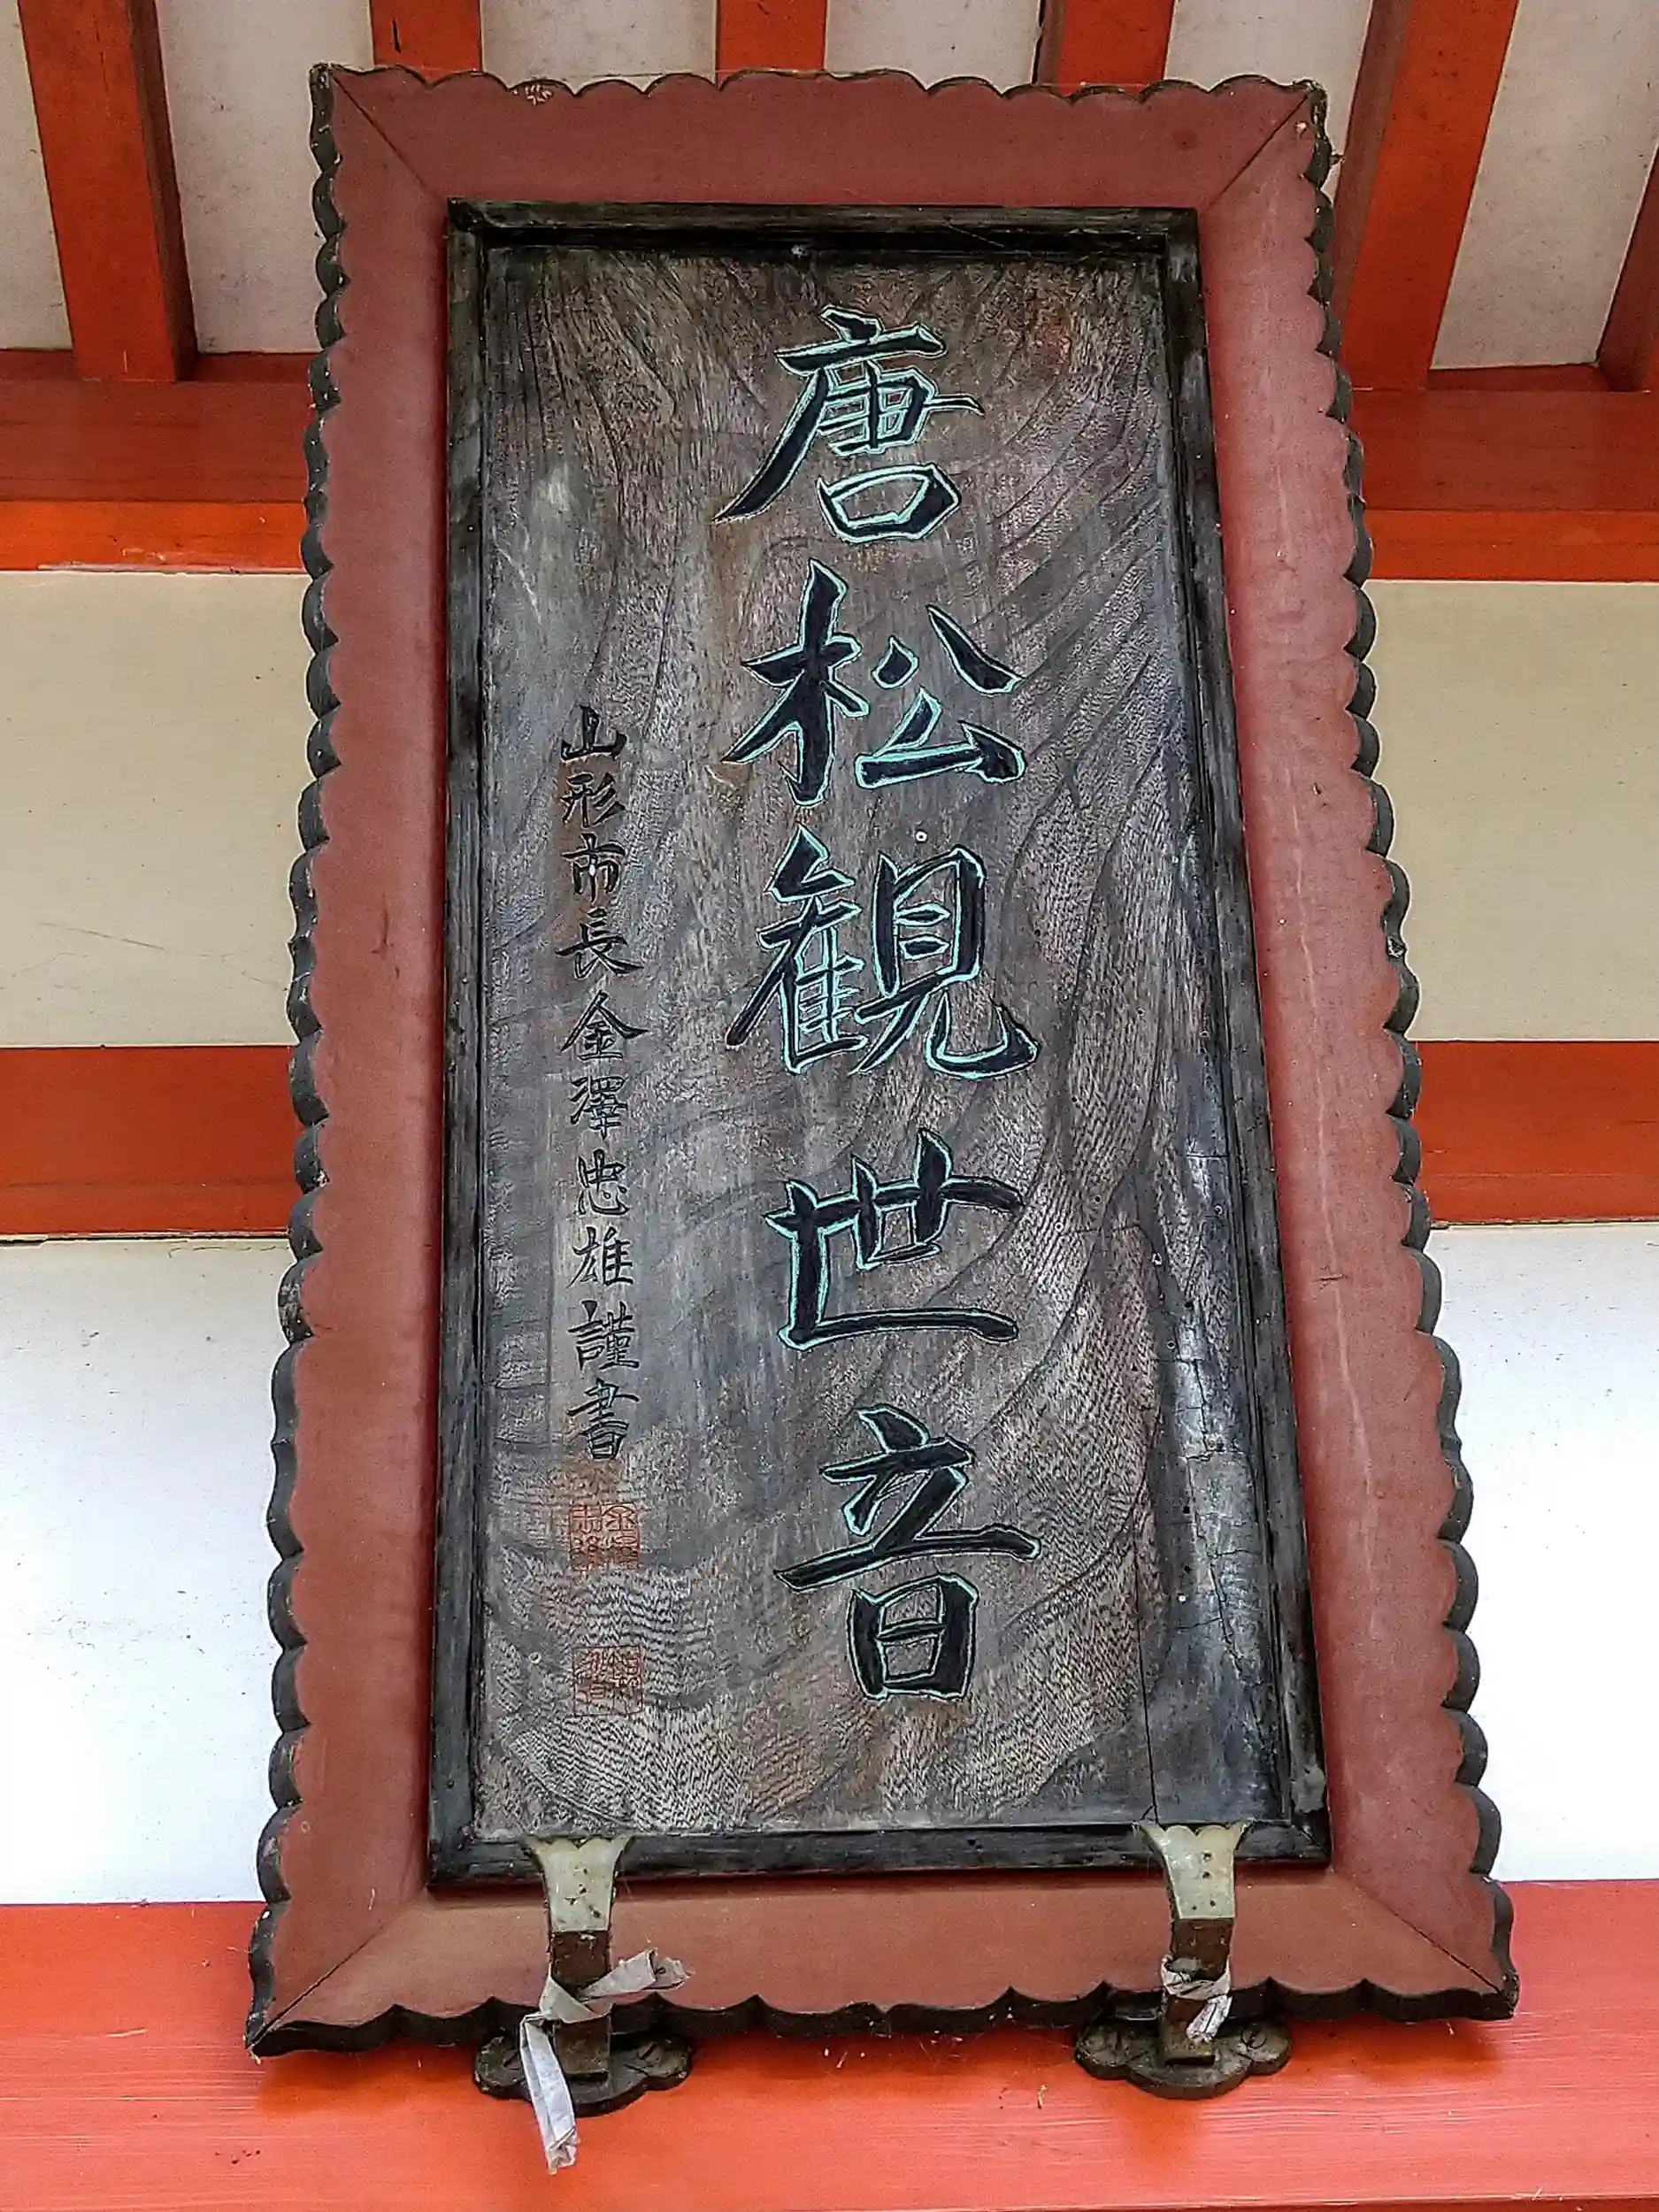 唐松観世音
山形市長金澤忠雄謹書